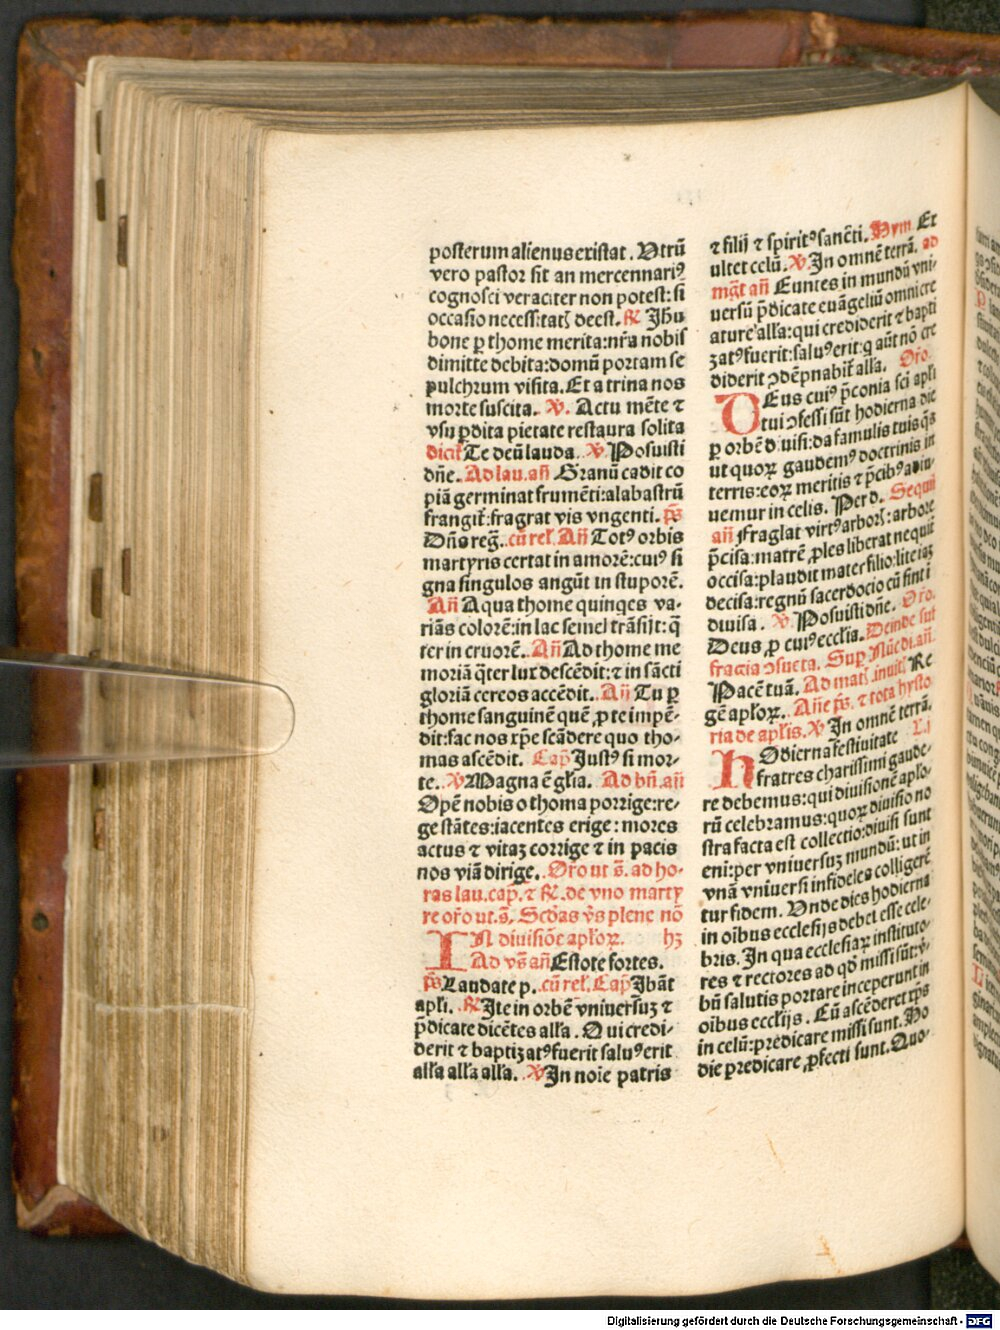 posterum alienus existat. Utrū
vero pastor sit an mercennariꝰ
cognosci veraciter non potest: si
occasio necessitatꝭ deest. ℟ Jhū
bone ꝑ thome merita: nr̄a nobis
dimitte debita: domū portam se
pulchrum visita. Et a trina nos
morte suscita. ℣. Actu mēte ⁊
vsu ꝑdita pietate restaura solita
dicit̉ Te deū lauda. ℣ Posuisti
dn̄e. Ad lau. an̄ Granū cadit co
piā germinat frumēti: alabastrū
frangit̉: fragrat vis vngenti. ps̄
Dn̄s reḡ. cū rel̉. An̄ Totꝰ orbis
martyris certat in amorē: cuiꝰ si
gna singulos angūt in stuporē.
An̄ Aqua thome quinqes va-
riās colorē: in lac semel trāsijt: q̄
ter in cruorē. An̄ Ad thome me
moriā q̄ter lux descēdit: ⁊ in sācti
gloriām cereos accēdit. An̄ Tu ꝑ
thome sanguinē quē ꝓ te impē-
dit: fac nos xp̄e scādere quo tho-
mas ascēdit. Cap̄ Justꝰ si mor-
te. ℣ Magna ē gl̉ia. Ad bn̄. an̄
Opē nobis o thoma porrige: re-
ge stātes: iacentes erige: mores
actus ⁊ vitaꝫ corrige ⁊ in pacis
nos viā dirige. Oro ut s̄. ad ho-
ras lau. cap̄. ⁊ ℟. de vno marty
re oro ut. s̄. Scd̄as vs̄ plene nō
IN divisiōe apl̉oꝝ. hꝫ
Ad vs̄ an̄ Estote fortes.
ps̄ Laudate p. cū rel̉. Cap̄ Jbāt
apl̉i. ℟ Jte in orbē vniuersuꝫ ⁊
p̄dicate dicētes all̉a. Qui credi-
derit ⁊ baptizatꝰ fuerit saluꝰ erit
all̉a all̉a all̉a. ℣ Jn noīe patris
⁊ filij ⁊ spiritꝰ sancti. Hym. Ex
ultet celū. ℣. Jn omnē terrā. ad
mḡt an̄ Euntes in mundū vni-
uersū p̄dicate euāgeliū omni cre
ature all̉a: qui crediderit ⁊ bapti
zatꝰ fuerit: saluꝰ erit: q aūt nō cre
diderit ↄdēpnabit̉ all̉a. Oro.
DEus cuiꝰ p̄conia sci apl̉i
tui ↄfessi sūt hodierna die
ꝑ orbē diuisi: da famulis tuis q̄s
ut quoꝝ gaudemꝰ doctrinis in
terris: eoꝝ meritis ⁊ p̄cibꝰ adiu-
uemur in celis. Per d. Sequit̉
an̄ Fraglat virtꝰ arborꝭ: arbore
p̄cisa: matrē ꝓles liberat nequit
occisa: plaudit mater filio: lite iaꝫ
decisa: regnū sacerdocio cū sint i
diuisa. ℣. Posuisti dn̄e. Oro.
Deus ꝓ cuiꝰ eccl̉is. Deinde suf
fragia ↄsueta. Suꝑ Nūc di. an̄.
Pacē tuā. Ad mat̉. inuit̉ Re
gē apl̉oꝝ. An̄e ps̄. ⁊ tota hysto
ria de apl̉is. ℣ Jn omnē terrā.
HOdierna festiuitate L. j
fratres charissimi gaude-
re debemus: qui diuisionē aplo-
rū celebramus: quoꝝ diuisio no
stra facta est collectio: diuisi sunt
eni: per vniuersuꝫ mundū: ut in
vnā vniuersi infideles colligerē
tur fidem. Unde dies hodierna
in oībus ecclesijs debet esse cele-
bris. In qua ecclesiaꝝ instituto-
res ⁊ rectores ad qd̄ missi sūt: v̄-
bū salutis portare inceperunt in
oībus eccl̉ijs. Cū ascēderet xp̄s
in celū: predicare missi sunt. Ho
die predicare ꝓfecti sunt. Quo-
Digitalisierung gefördert durch die Deutsche Forschungsgemeinschaft - DFG